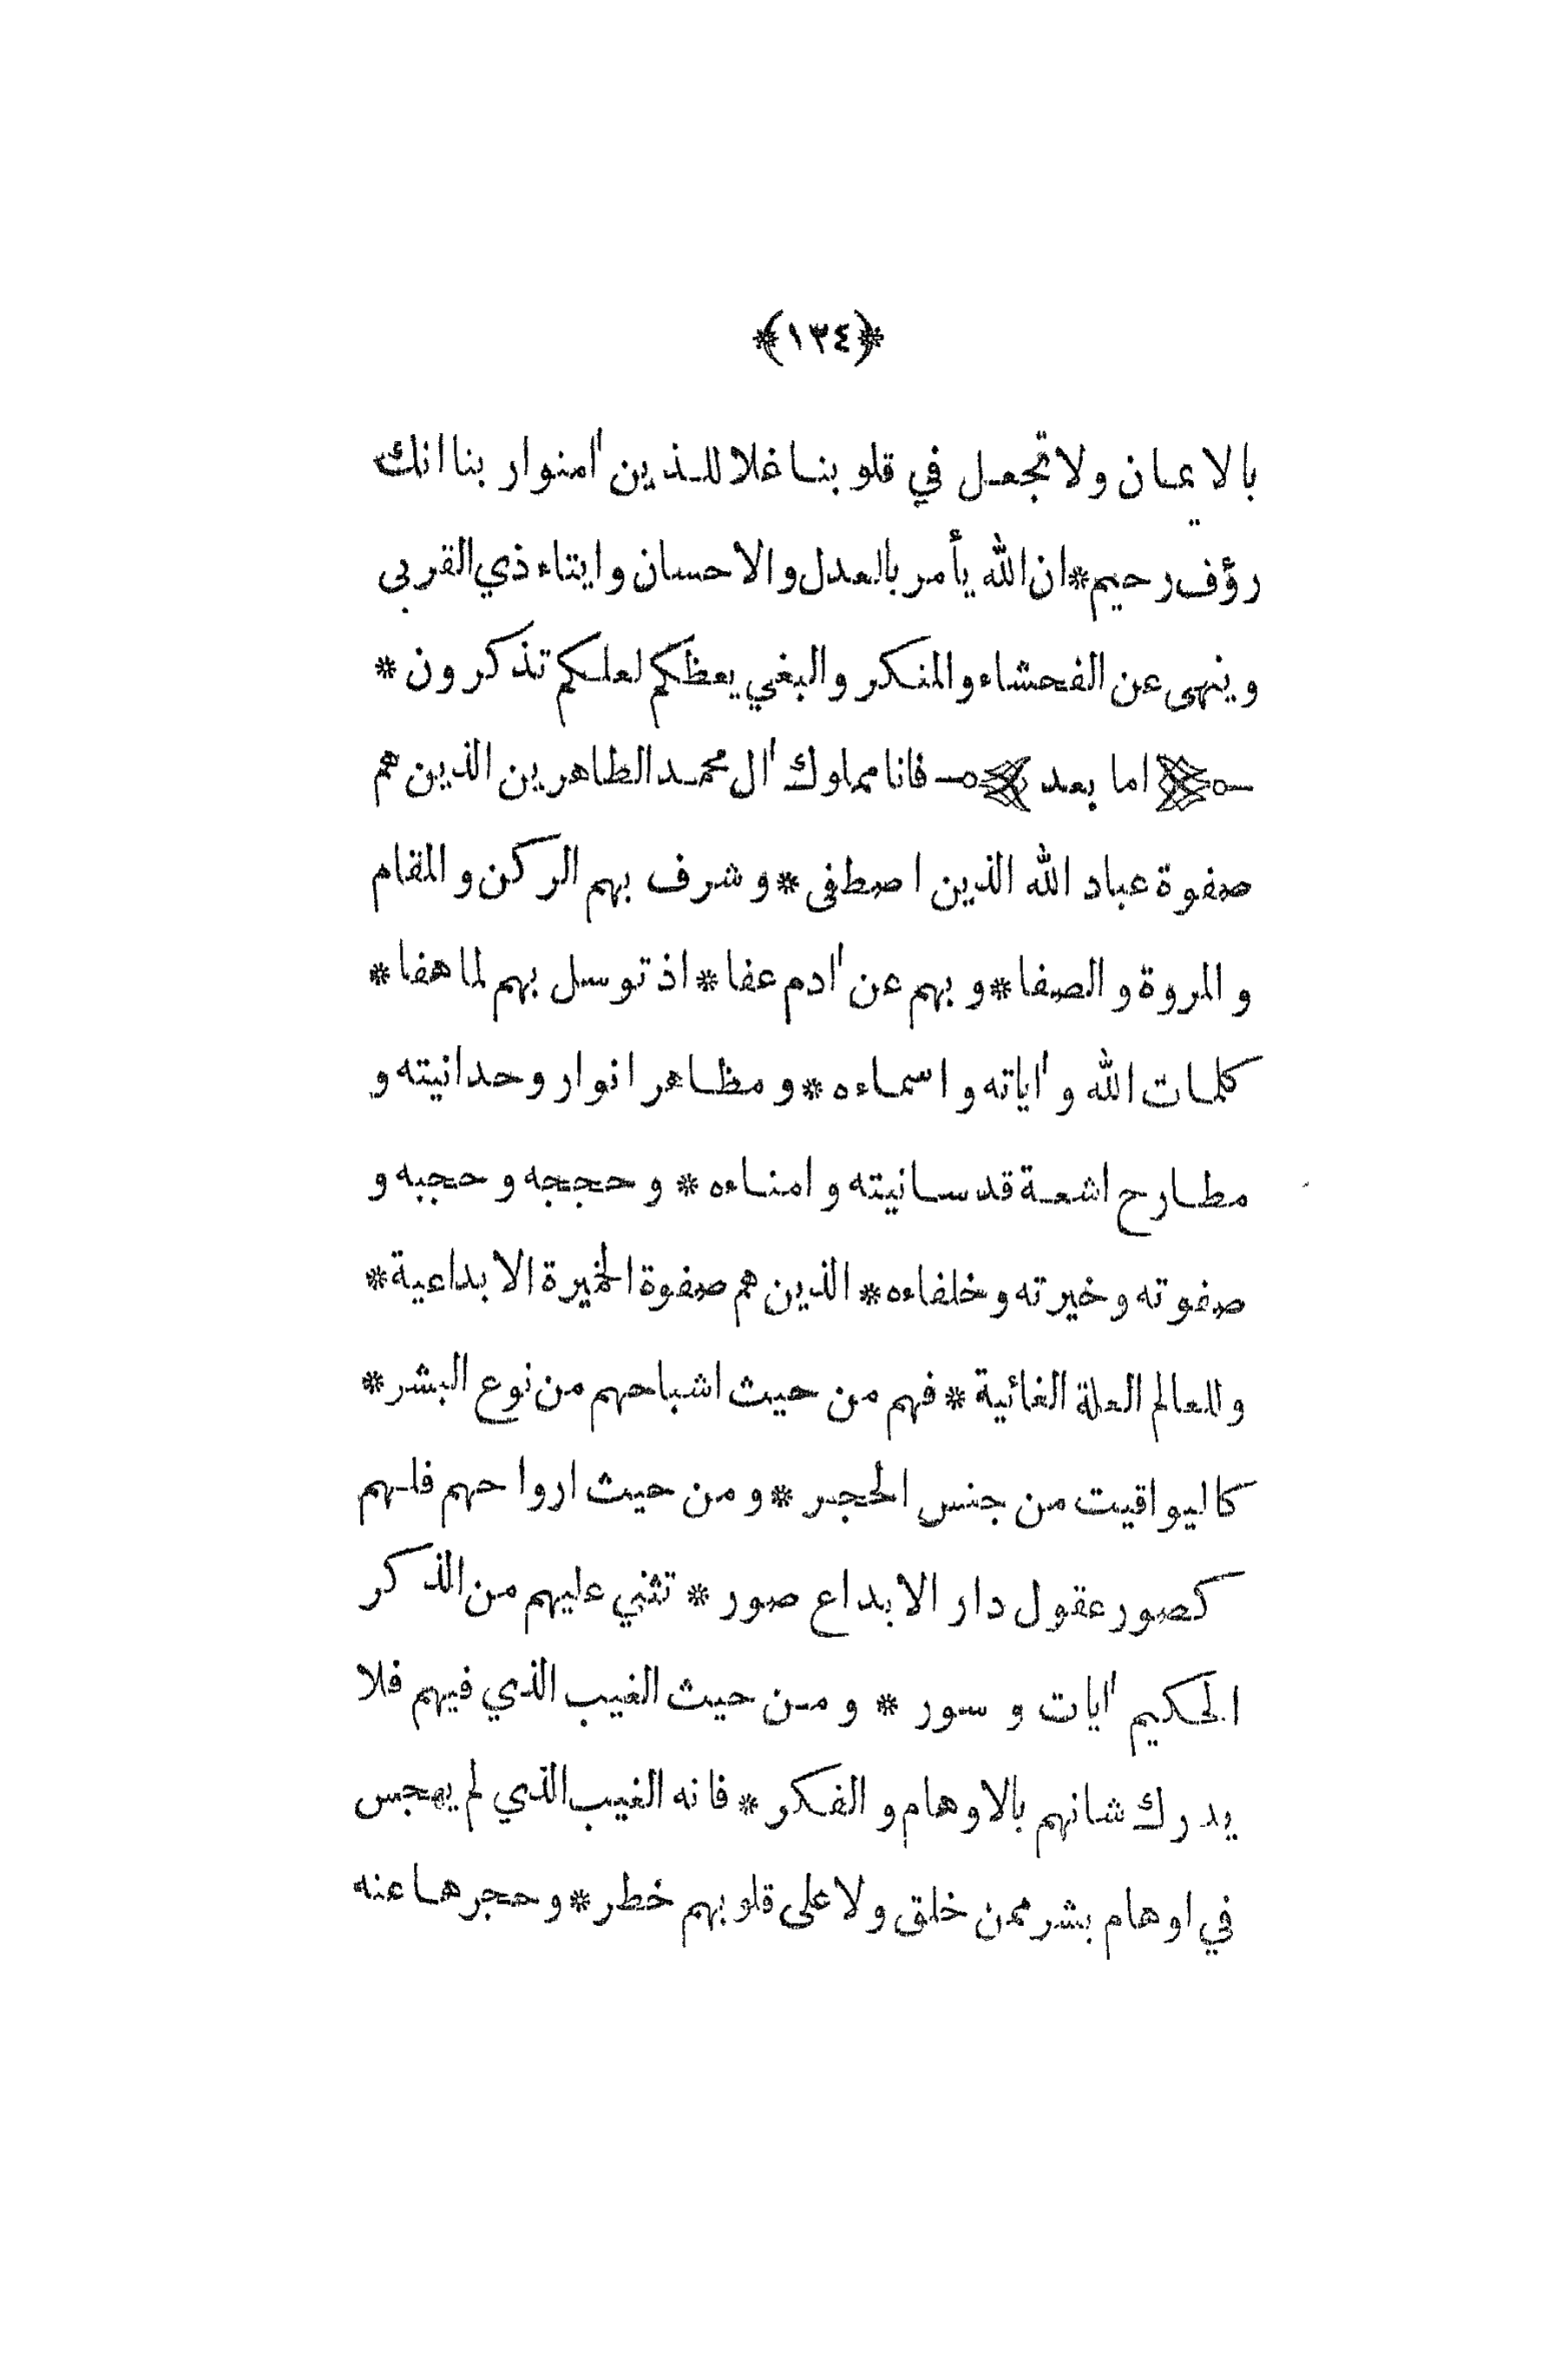 ﴿١٣٤﴾
بالايمان ولا تجعل في قلوبنا غلا للذين اٰمنوا ربنا انك
رؤف رحيم * ان الله يأمر بالعدل والاحسان وايتاء ذي القربى
وينهى عن الفحشاء والمنكر والبغي يعظكم لعلكم تذكرون *
اما بعد فانا مملوك اٰل محمد الطاهرين الذين هم
صفوة عباد الله الذين اصطفى * وشرف بهم الركن والمقام
والمروة والصفا * وبهم عن اٰدم عفا * اذ توسل بهم لما هفا *
كلمات الله واٰياته واسماءه * ومظاهر انوار وحدانيته و
مطارح اشعة قدسانيته وامناءه * وحججه وحجبه و
صفوته وخيرته وخلفاءه * الذين هم صفوة الخيرة الابداعية *
وللعالم العلة الغائية * فهم من حيث اشباحهم من نوع البشر *
كاليواقيت من جنس الحجر * ومن حيث ارواحهم فلهم
كصور عقول دار الابداع صور * تثني عليهم من الذكر
الحكيم اٰيات وسور * ومن حيث الغيب الذي فيهم فلا
يدرك شانهم بالاوهام والفكر * فانه الغيب الذي لم يهجس
في اوهام بشر ممن خلق ولا على قلوبهم خطر * وحجرها عنه